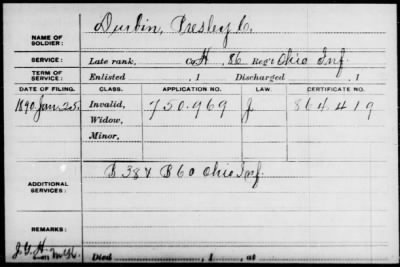 NAME OF SOLDIER: Durbin, Presley C.
SERVICE: Late rank, Co. H, 86 Reg't Ohio Inf.
TERM OF SERVICE: Enlisted , 1 Discharged , 1
DATE OF FILING. CLASS. APPLICATION NO. LAW. CERTIFICATE NO.
1890 Jan. 25. Invalid, 750.969 J 864.419
Widow,
Minor,
ADDITIONAL SERVICES: B 38 & B 60 Ohio Inf.
REMARKS:
Died , 1 , at